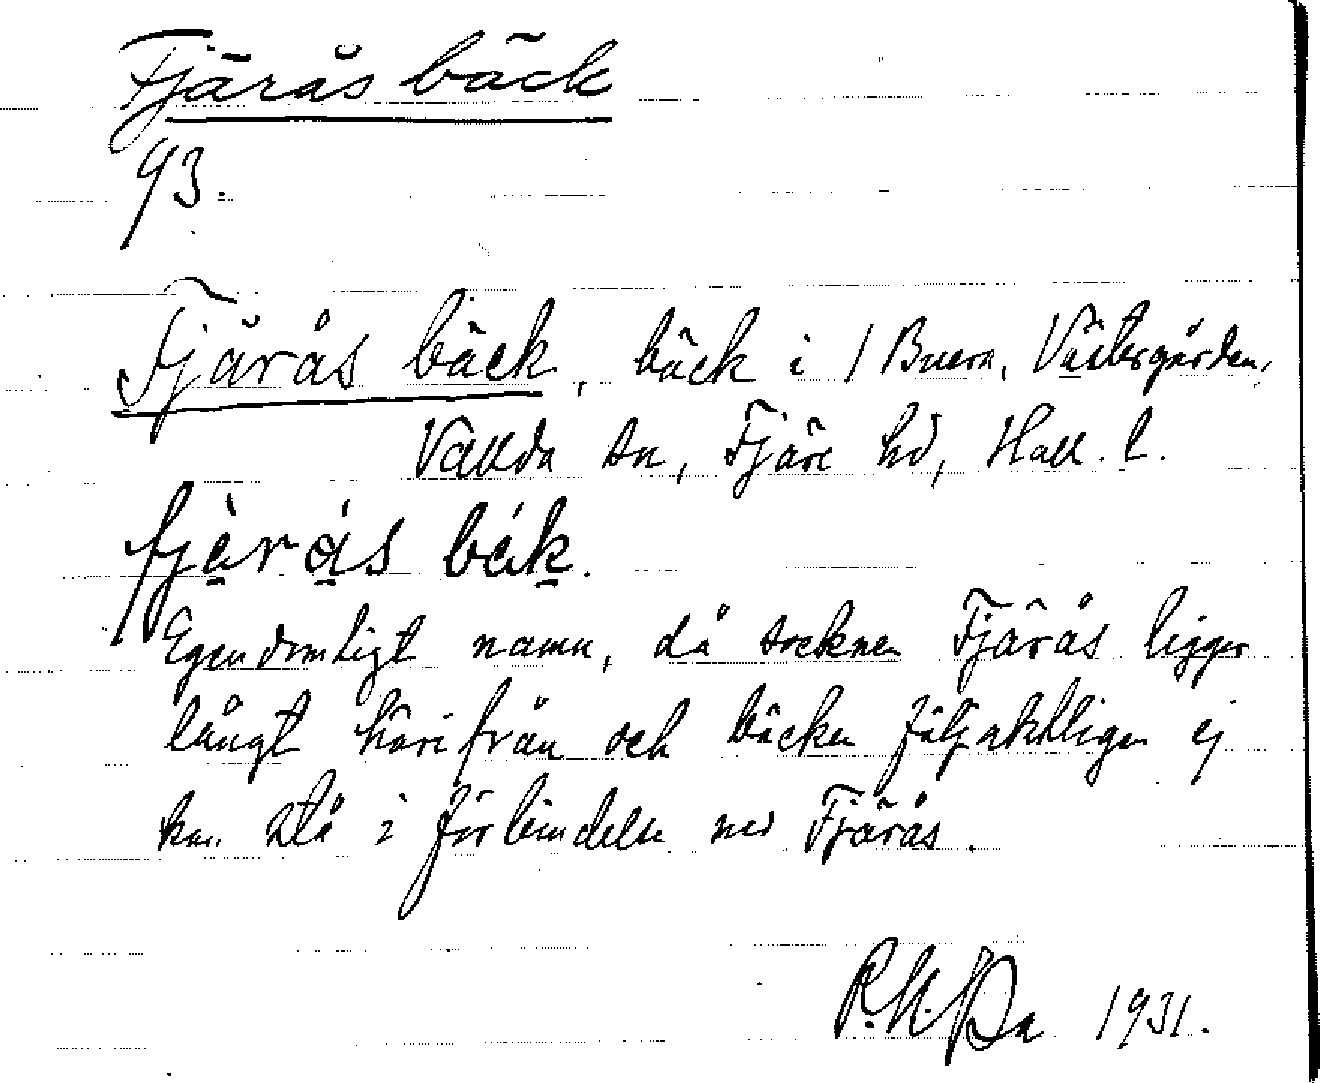 Fjärås bäck
93.
Fjärås bäck, bäck i 1 Buera, Västergården,
Vallda sn, Fjäre hd, Hall. l.
fjä̀rå̀s bä́k.
Egendomligt namn, då socknen Fjärås ligger
långt härifrån och bäcken följaktligen ej
kan stå i förbindelse med Fjärås.
1931.